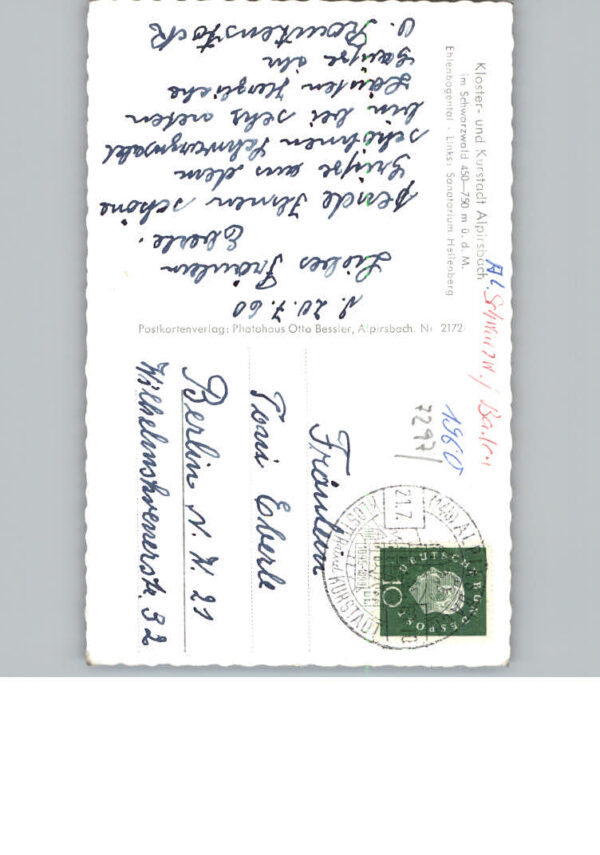 Kloster- und Kurstadt Alpirsbach
im Schwarzwald 450—750 m ü. d. M.
Ehlenbogental · Links: Sanatorium Heilenberg
20.7.60
Liebes Fräulein
Eberle.
sende Ihnen schöne
Grüße aus dem
schönen Schwarzwald
bin bei sehr netten
Leuten Herzliche
Grüße
Postkartenverlag: Photohaus Otto Bessler, Alpirsbach. Nr. 2172
1960
7297/
Fräulein
Toni Eberle
Berlin N.W 21
Wilhelmshavenerstr. 32
21.7.
KURSTADT
DEUTSCHE BUNDESPOST
10